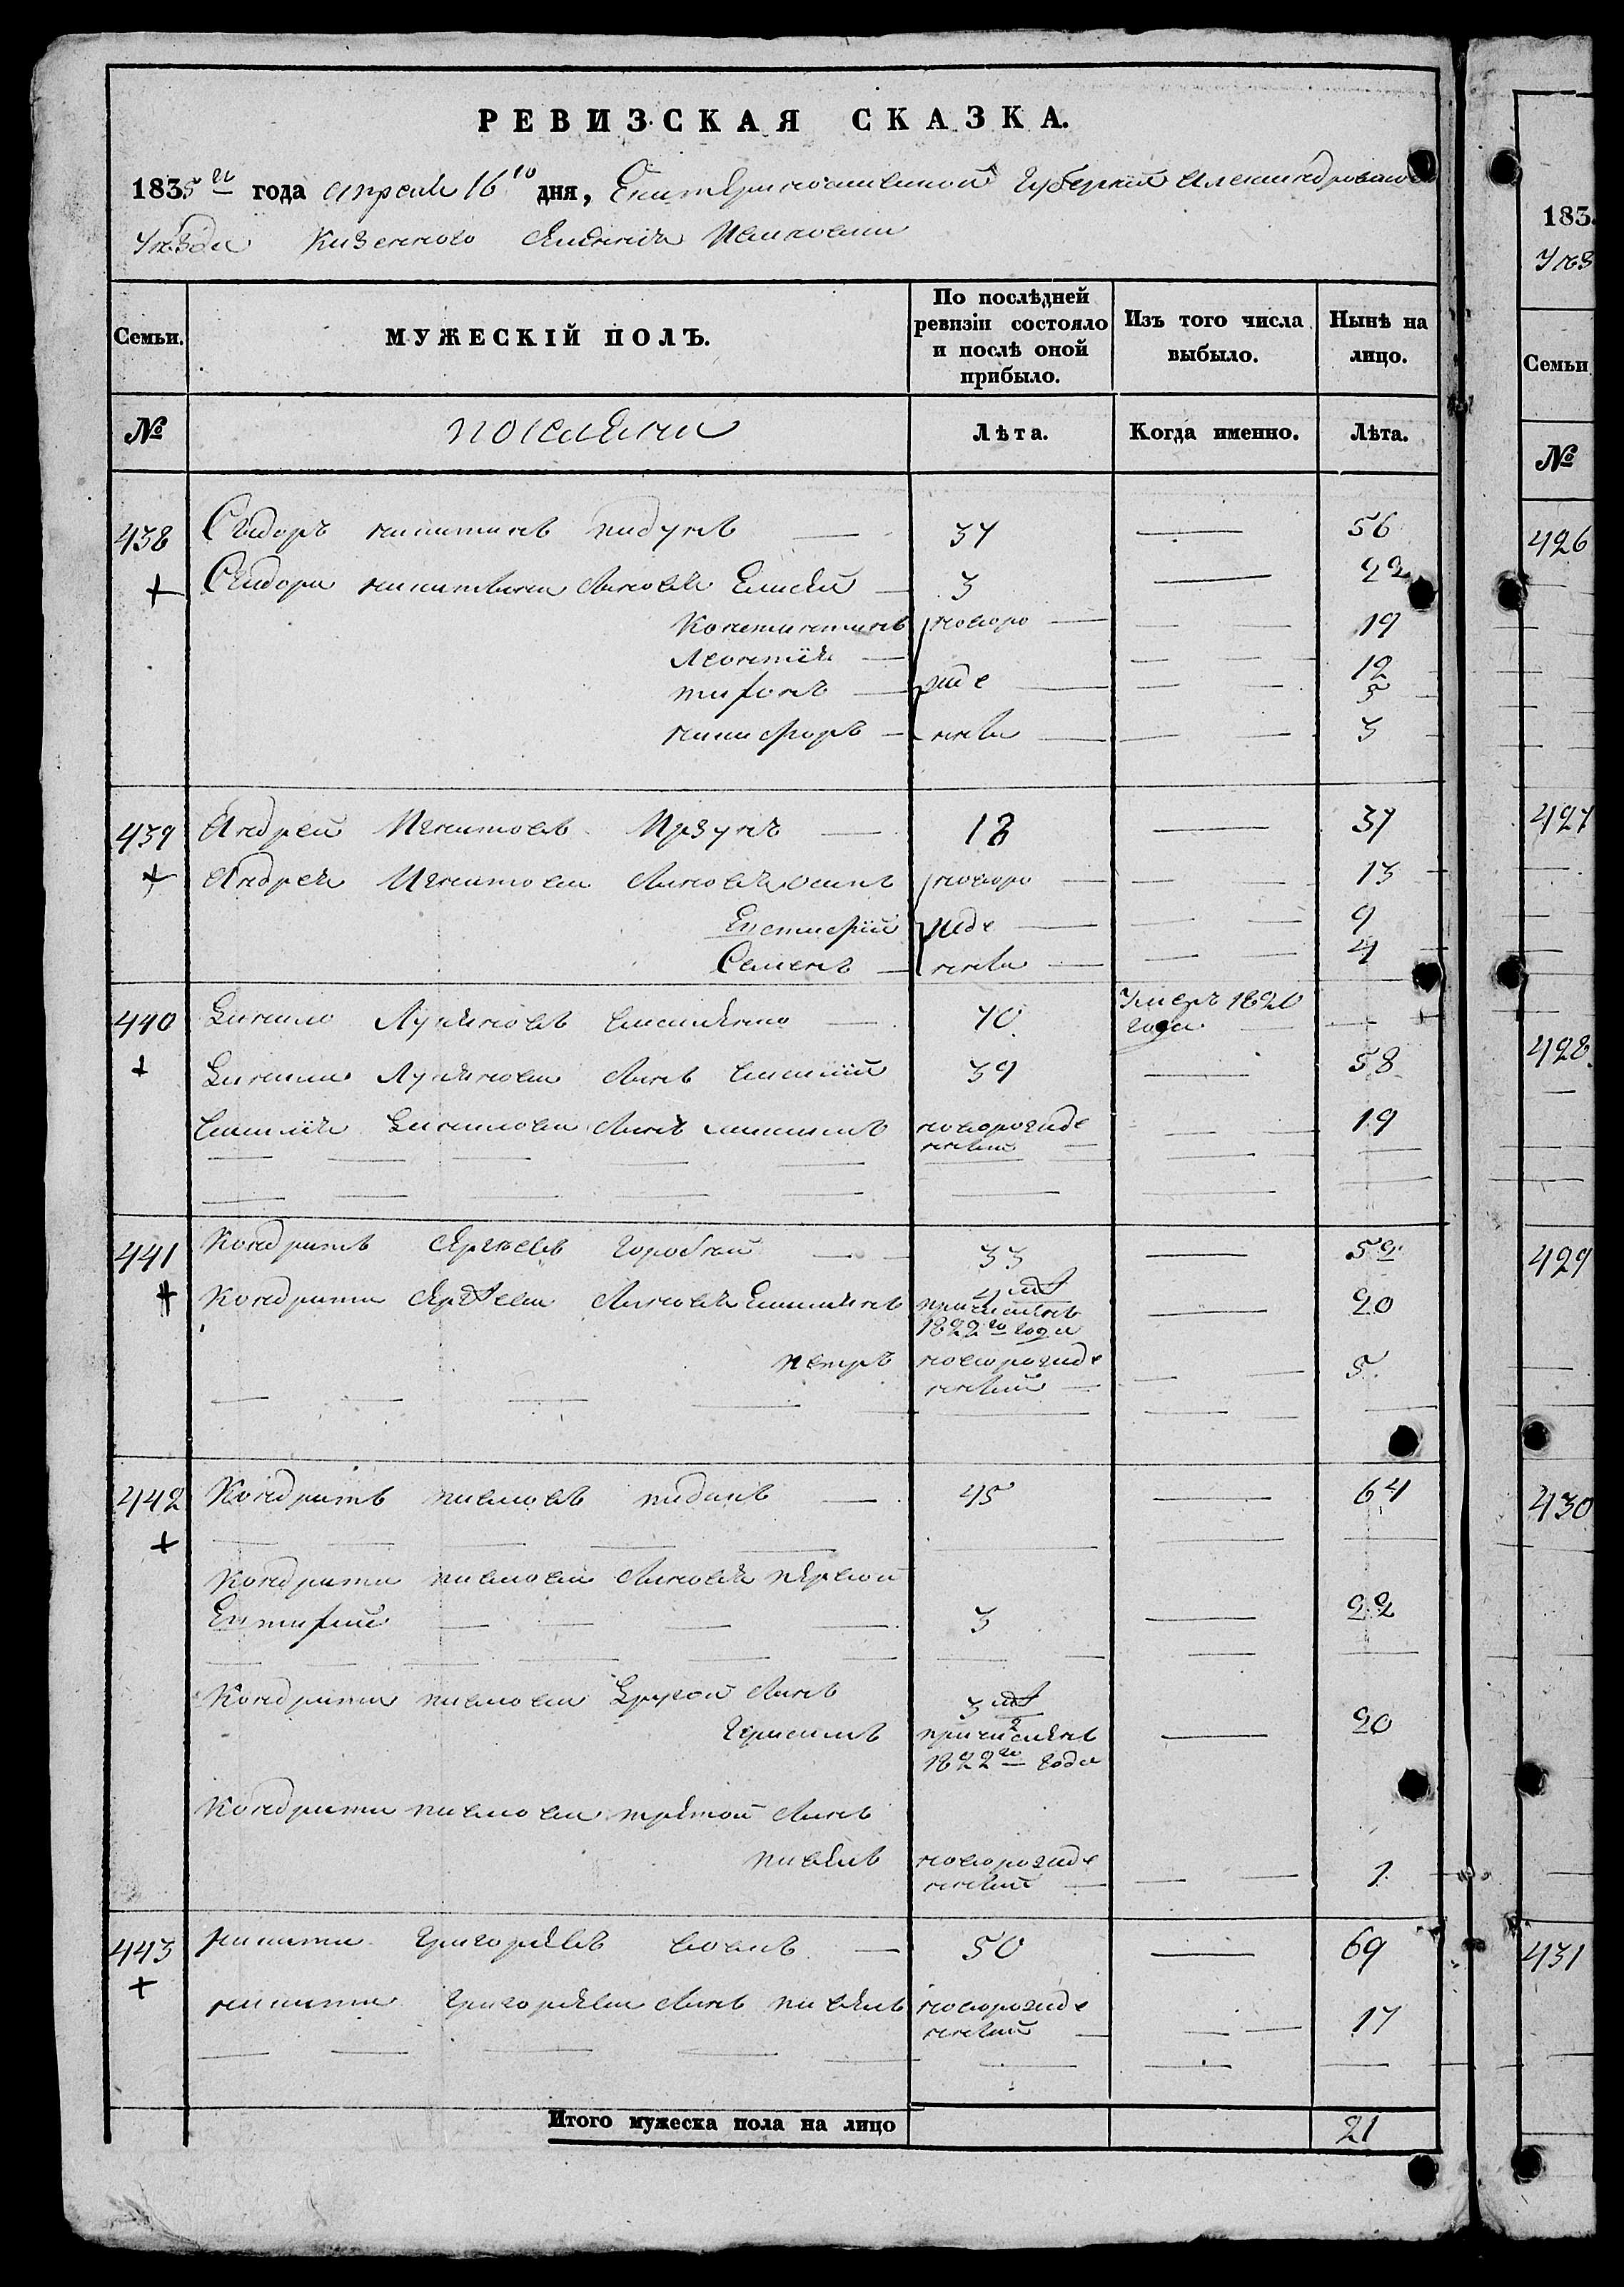 РЕВИЗСКАЯ СКАЗКА.
1835 го года апреля 16 го дня, Екатеринославской Губернии Александровского
Уезда Казенного Селения
Семьи. МУЖЕСКІЙ ПОЛЪ. По послѣдней ревизіи состояло и послѣ оной прибыло. Изъ того числа выбыло. Нынѣ на лицо.
№ поселяне Лѣта. Когда именно. Лѣта.
438 Сидоръ никитинъ 37 56
Сидора никитина Сыновья Елисей 3 22
Константинъ новоро 19
Леонтий 12
тифонъ жде 5
никифоръ нные 3
439 Андрей Игнатовъ 18 37
Андрея Игнатова Сыновья осипъ новоро 13
Евстафий жде 9
Семенъ нные 4
440 Данило Лукяновъ 70 Умеръ 1820
года
Данила Лукянова Сынъ василий 39 58
василия Данилова Сынъ максимъ новорожде 19
нный
441 Кондратъ Сергеевъ горобей 33 52
Кондрата Сергеева Сыновья Емилянъ причисленъ 20
1822 го года
петръ новорожде 5
нный
442 Кондратъ павловъ 45 64
Кондрата павлова Сыновья первой
Евтифий 3 22
Кондрата павлова Другой Сынъ
Герасимъ 3
причисленъ 20
1822 го года
Кондрата павлова третой Сынъ
павелъ новорожде 1
нный
443 никита григорьевъ 50 69
никиты григорьева Сынъ павелъ новорожде 17
нный
Итого мужеска пола на лицо 21
183
Уез
Семьи
№
426
427
428
429
430
431